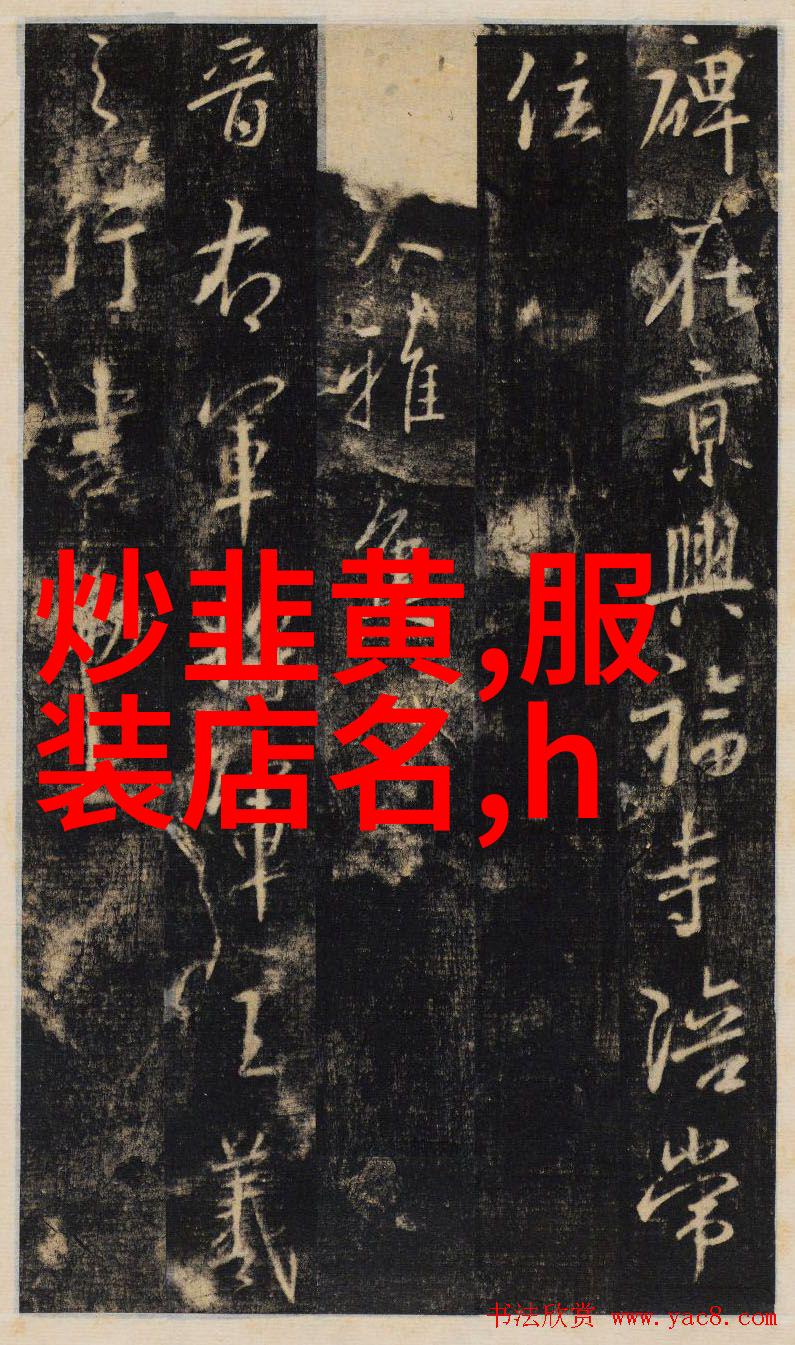 碑在京興福寺陪常
住
大雅集
晋右軍将軍王羲
之行書
炒韭黄,服
装店名,h
书法欣赏 www.yac8.com